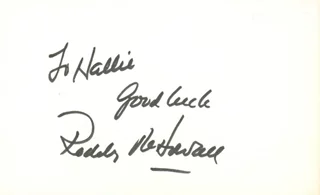 To Hallie
Good luck
Roddy McDowall